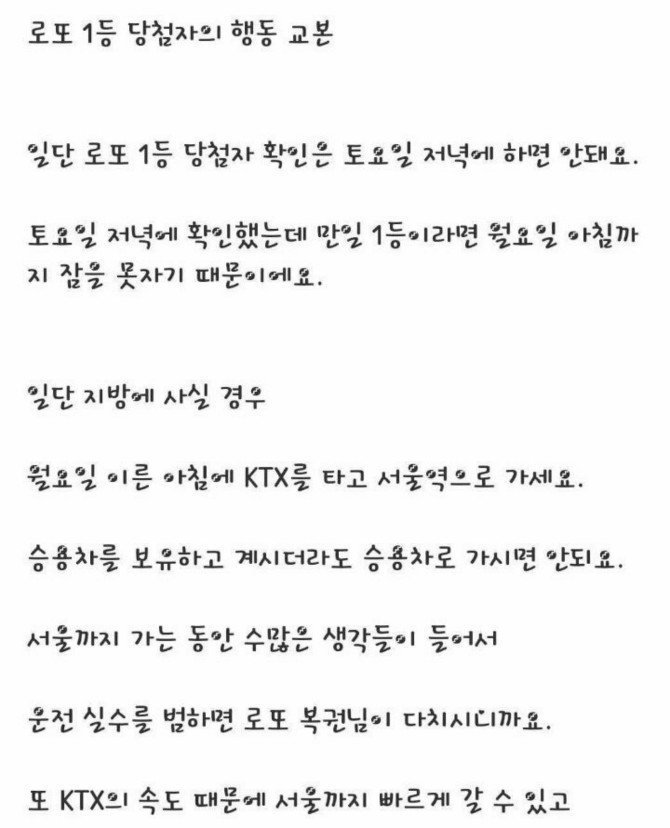 로또 1등 당첨자의 행동 교본
일단 로또 1등 당첨자 확인은 토요일 저녁에 하면 안돼요.
토요일 저녁에 확인했는데 만일 1등이라면 월요일 아침까
지 잠을 못자기 때문이에요.
일단 지방에 사실 경우
월요일 이른 아침에 KTX를 타고 서울역으로 가세요.
승용차를 보유하고 계시더라도 승용차로 가시면 안되요.
서울까지 가는 동안 수많은 생각들이 들어서
운전 실수를 범하면 로또 복권님이 다치시니까요.
또 KTX의 속도 때문에 서울까지 빠르게 갈 수 있고